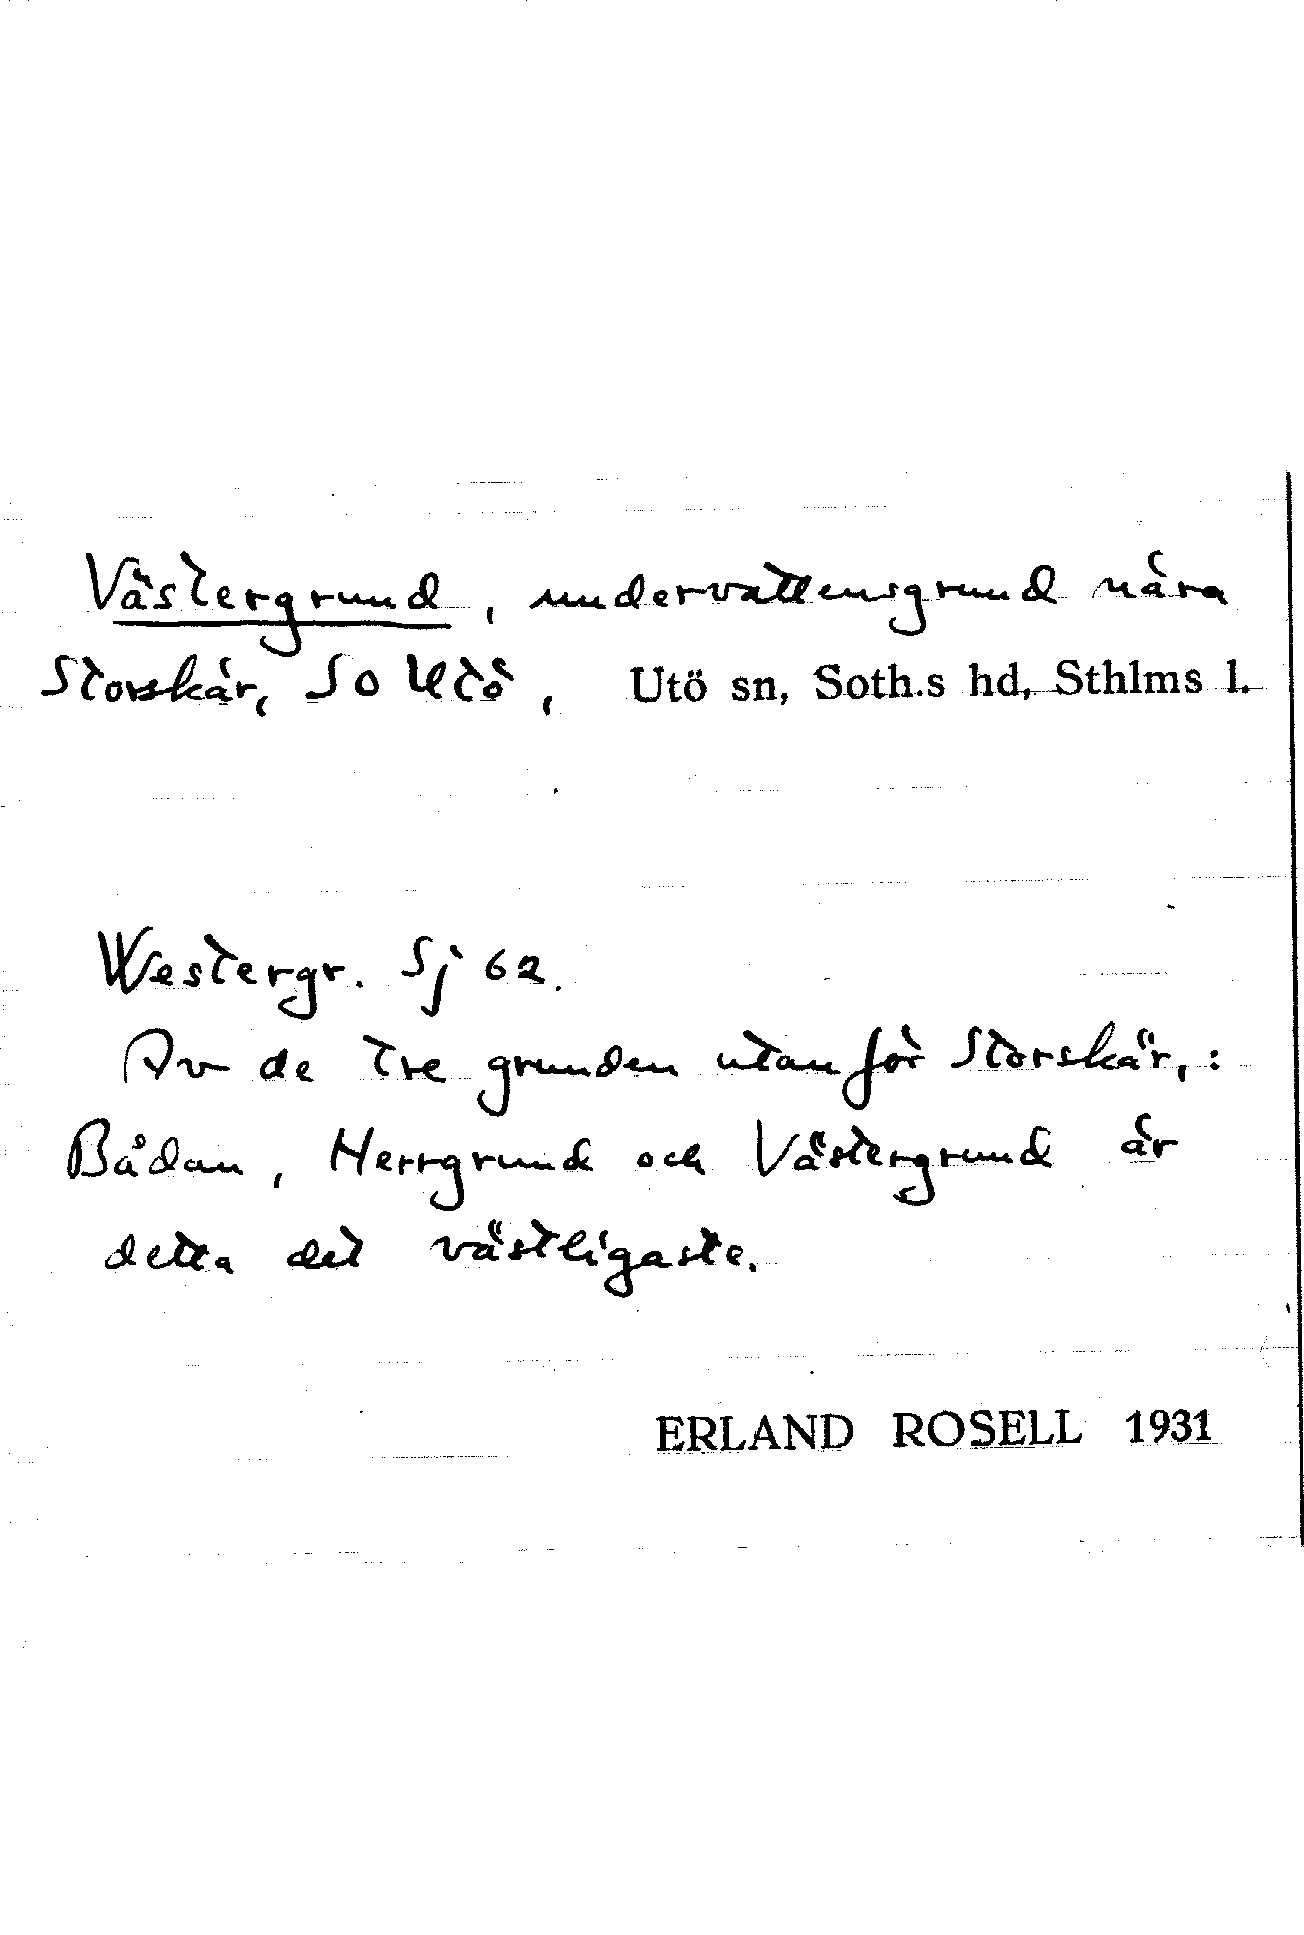 Västergrund, undervattensgrund nära
Storskär, SO Utö, Utö sn, Soth.s hd, Sthlms l.
Westergr. Sj 62.
Av de tre grunden utanför Storskär,:
Bådan, Herrgrund och Västergrund är
detta det västligaste.
ERLAND ROSELL 1931